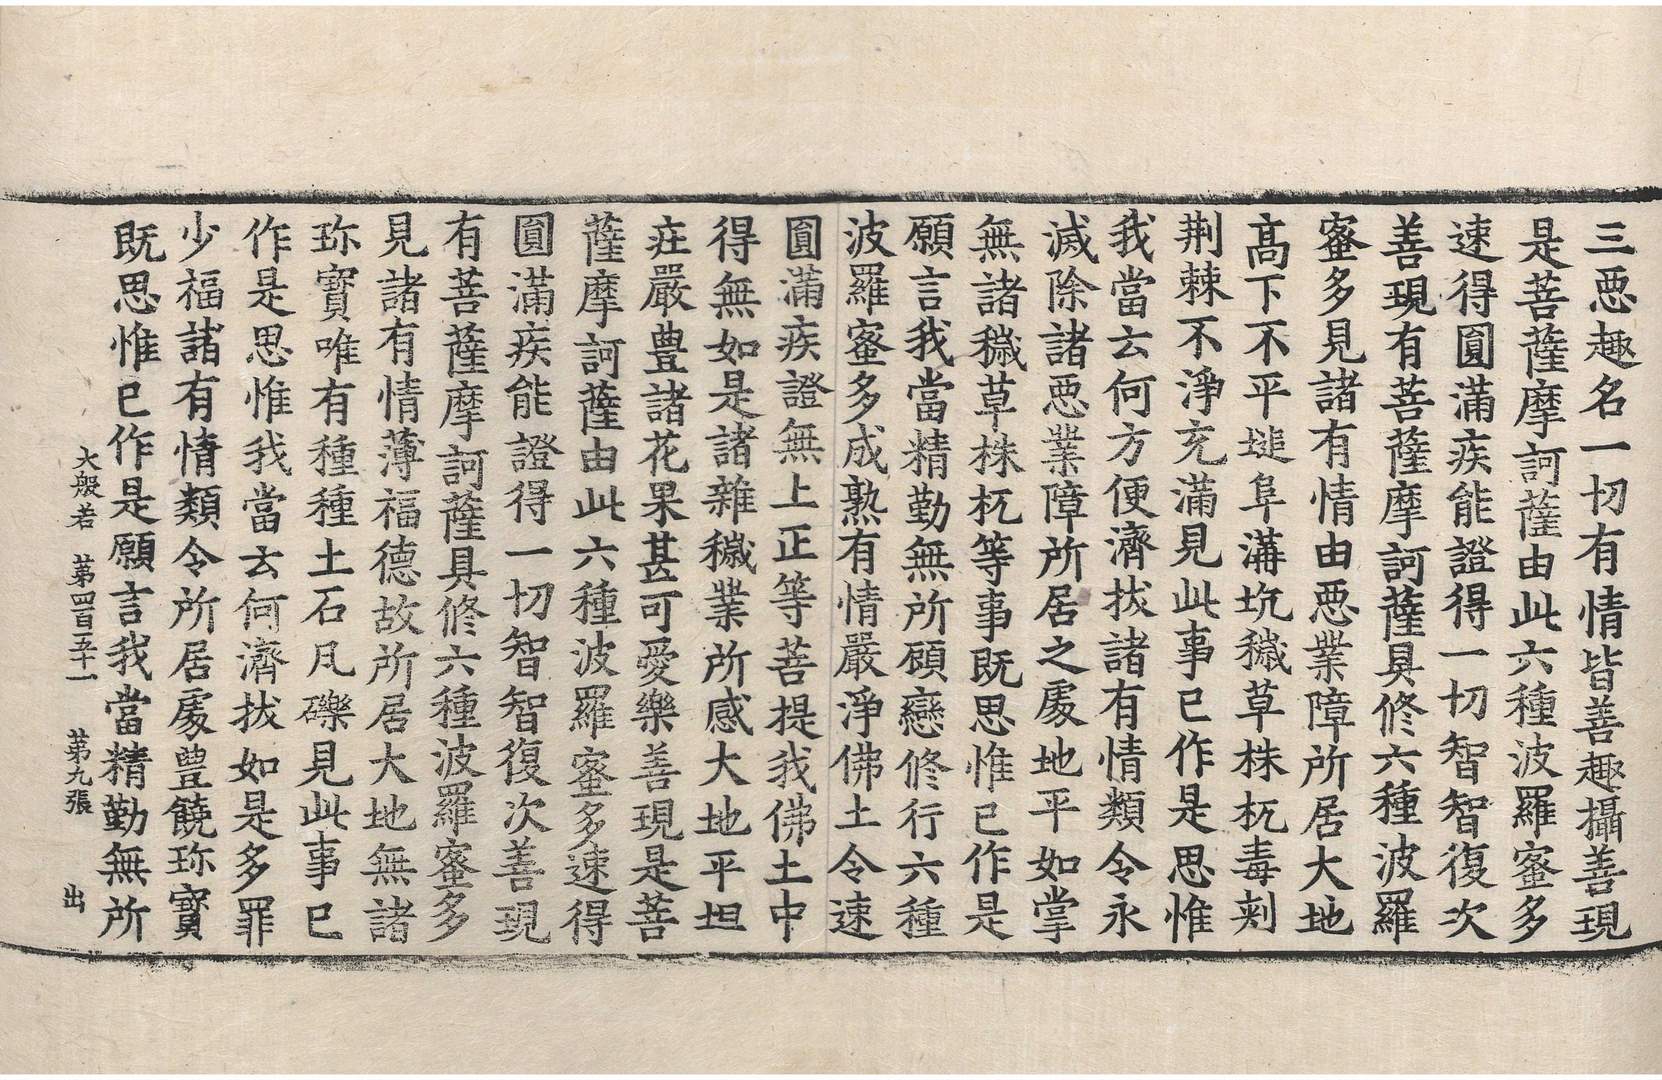 三惡趣名一切有情皆善趣攝善現
是菩薩摩訶薩由此六種波羅蜜多
速得圓滿疾能證得一切智智復次
善現有菩薩摩訶薩具修六種波羅
蜜多見諸有情由惡業障所居大地
高下不平塠阜溝坑穢草株杌毒刺
荆棘不淨充滿見此事已作是思惟
我當云何方便濟拔諸有情類令永
滅除諸惡業障所居之處地平如掌
無諸穢草株杌等事既思惟已作是
願言我當精勤無所顧戀修行六種
波羅蜜多成熟有情嚴淨佛土令速
圓滿疾證無上正等菩提我佛土中
得無如是諸雜穢業所感大地平坦
莊嚴豊諸花果甚可愛樂善現是菩
薩摩訶薩由此六種波羅蜜多速得
圓滿疾能證得一切智智復次善現
有菩薩摩訶薩具修六種波羅蜜多
見諸有情薄福德故所居大地無諸
珎寶唯有種種土石凡礫見此事已
作是思惟我當云何濟拔如是多罪
少福諸有情類令所居處豊饒珎寶
既思惟已作是願言我當精勤無所
大般若　第四百五十一　第九張　出